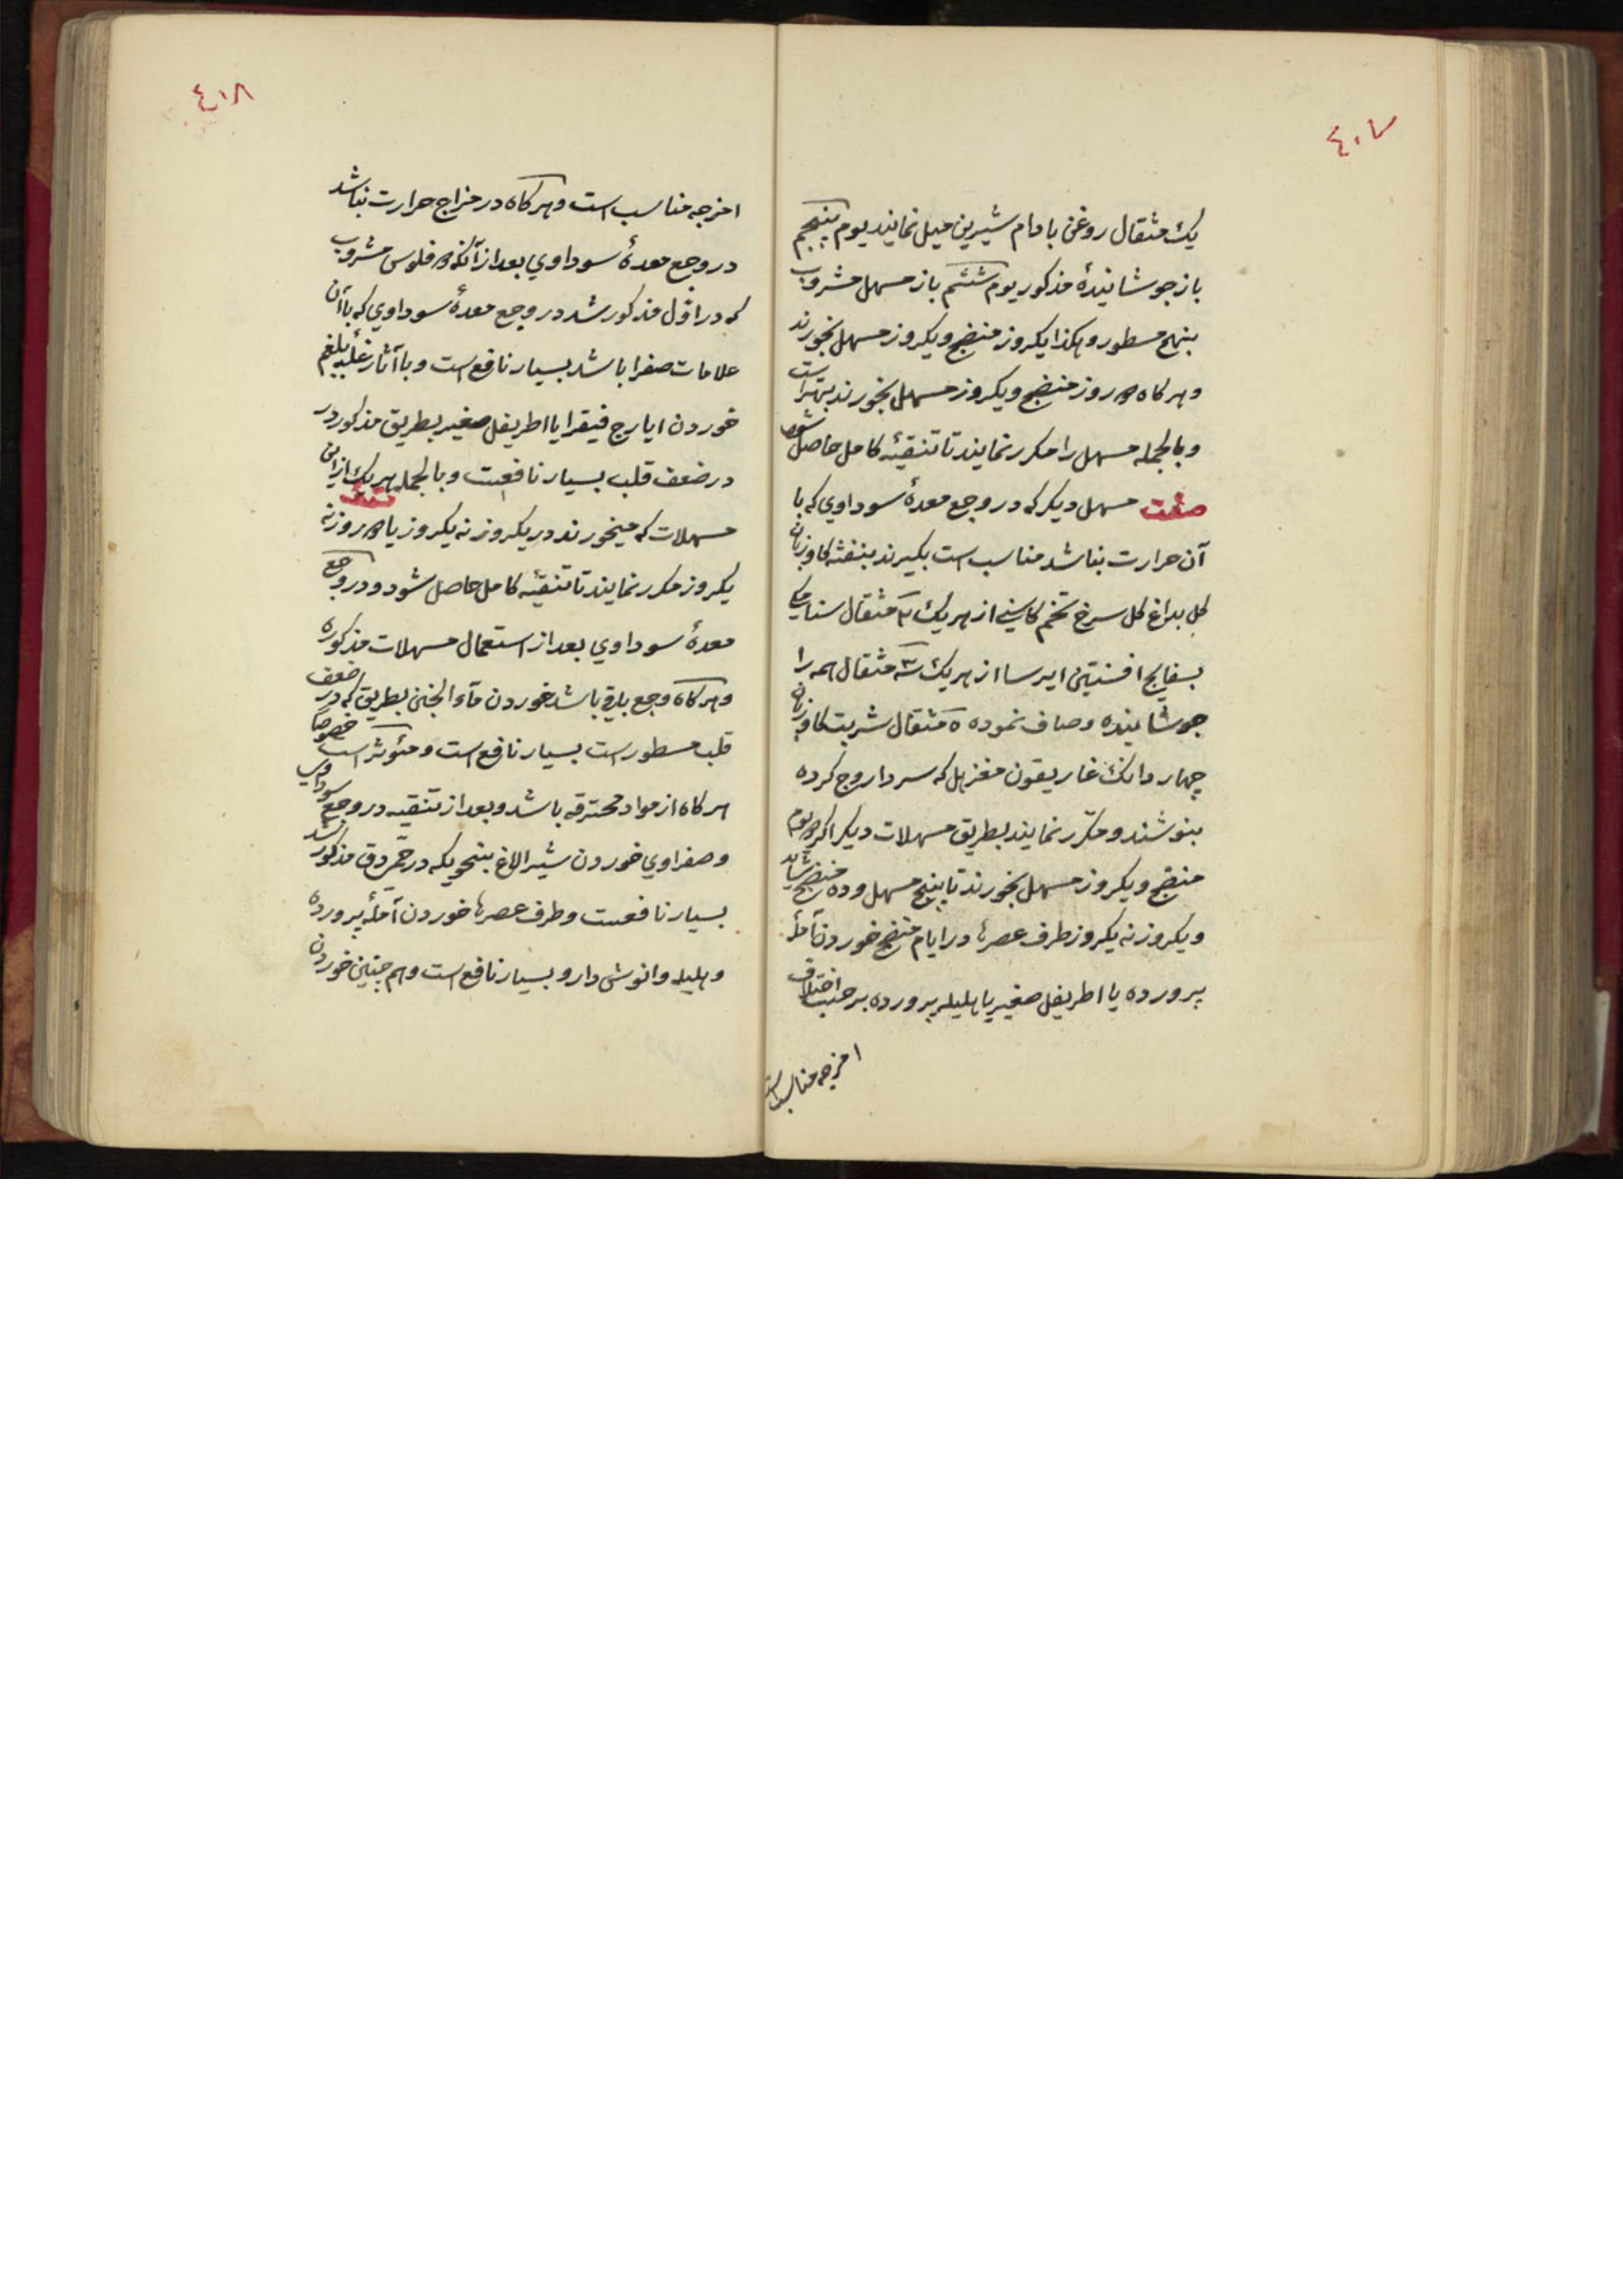 ٤٠٧
یک مثقال روغن بادام شیرین میل نمایند یوم پنجم
باز جوشانیدهٔ مذکور یوم ششم باز مسهل مشروب
بنهج مسطور و هکذا یکروز منضج و یکروز مسهل بخورند
و هرکاه دو روز منضج و یکروز مسهل بخورند بهتر است
و بالجمله مسهل را مکرر نمایند تا تنقیهٔ کامل حاصل شود
صفت مسهل دیکر که در وجع معدهٔ سوداوي که با
آن حرارت بناشد مناسب است بکیرند بنفشه کاوزبان
کل بداغ کل سرخ تخم کاسنی از هریک ۲ مثقال سنامکی
بسفایج افسنتین ایرسا از هریک ۳ مثقال همه را
جوشانیده و صاف نموده ۵ مثقال شربت کاوزبان
چهار دانک غاریقون مغربل که سردار وج کرده
بنوشند و مکرر نمایند بطریق مسهلات دیکر اکر دو یوم
منضج و یکروز مسهل بخورند تا پنج مسهل و ده منضج شاید
و یکروز نه یکروز طرف عصرها در ایام منضج خوردن آملهٔ
پرورده یا اطریفل صغیر یا هلیله پرورده برحسب اختلاف
امزجه مناسب است
٤١٨
امزجه مناسب است و هرکاه در مزاج حرارت بناشد
در وجع معدهٔ سوداوي بعد از آنکه دو فلوس مشروب
که در اوّل مذکور شد در وجع معدهٔ سوداوي که با آن
علامات صفرا باشد بسیار نافع است و با آثار غلبهٔ بلغم
خوردن ایارج فیقرا یا اطریفل صغیر بطریق مذکور در
در ضعف قلب بسیار نافعست و بالجمله هریک از این
مسهلات که میخورند در یکروز نه یکروز یا دو روز نه
یکروز مکرر نمایند تا تنقیهٔ کامل حاصل شود و در وجع
معدهٔ سوداوي بعد از استعمال مسهلات مذکوره
و هرکاه وجع باقی باشد خوردن ماء الجبن بطریق که در ضعف
قلب مسطور است بسیار نافع است و مؤثر است خصوصا
هرکاه از مواد محترقه باشد و بعد از تنقیه در وجع سوداوي
و صفراوي خوردن شیر الاغ بنحویکه در حمی دق مذکور شد
بسیار نافعست و طرف عصرها خوردن آملهٔ پرورده
و هلیله و انوش دارو بسیار نافع است و هم چنین خوردن